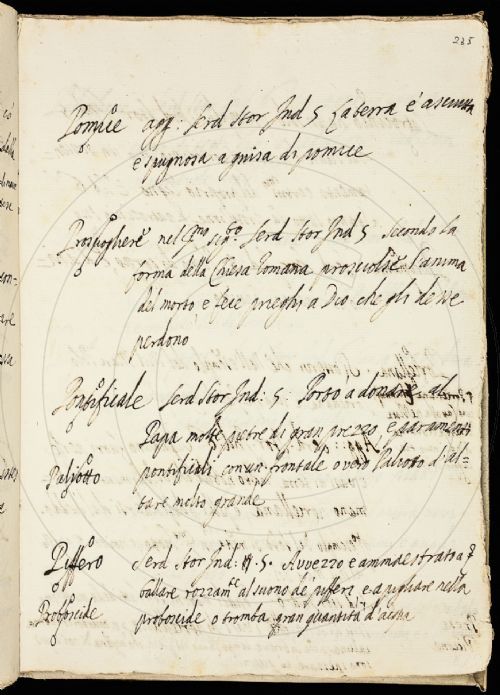 235
Pomice agg: Serd Stor Ind 5 La terra è asciutta
e spugnosa a guisa di pomice
Prosciogliere nel p.mo sig.to Serd Stor Ind 5 secondo la
forma della Chiesa Romana prosciolse l'anima
del morto e fece prieghi a Dio che gli desse
perdono
Pontificale Serd Stor Ind: 5: Porto a donare al
Papa molte pietre di gran prezzo, e paramenti
Paliotto pontificali con un frontale o vero Paliotto d'al-
tare molto grande
Piffero Serd Stor Ind: 5. Avvezzo e ammaestrato a
ballare rozzam.te al suono de' pifferi e a pigliare nella
Proboscide proboscide o tromba gran quantità d'acqua